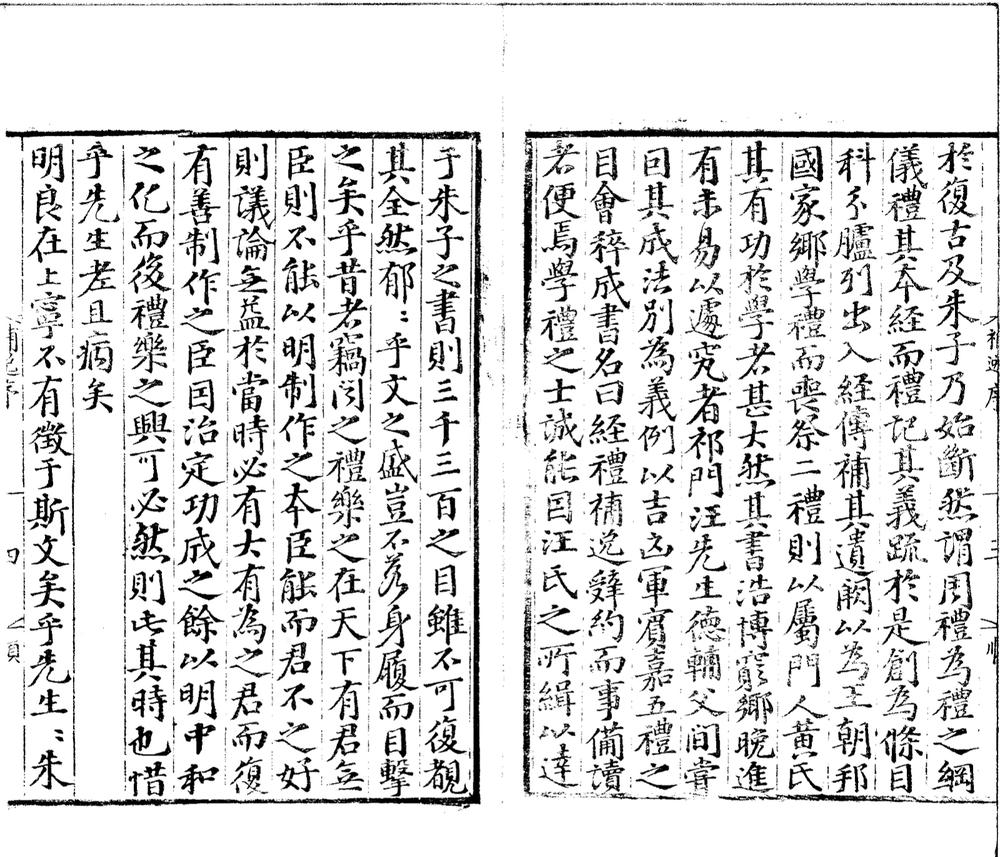 於復古及朱子乃始斷然謂周禮為禮之綱
儀禮其本經而禮記其義疏於是創為條目
科分臚列出入經傳補其遺闕以為王朝邦
國家鄉學禮而喪祭二禮則以屬門人黃氏
其有功於學者甚大然其書浩博窮鄉晚進
有未易以遽究者祁門汪先生德輔父間嘗
因其成法別為義例以吉凶軍賓嘉五禮之
目會稡成書名曰經禮補逸辤約而事備讀
者便焉學禮之士誠能因汪氏之所緝以達
于朱子之書則三千三百之目雖不可復覩
其全然郁〻乎文之盛豈不若身履而目擊
之矣乎昔者竊聞之禮樂之在天下有君無
臣則不能以明制作之本臣能而君不之好
則議論無益於當時必有大有為之君而復
有善制作之臣因治定功成之餘以明中和
之化而後禮樂之興可必然則此其時也惜
乎先生老且病矣
明良在上寧不有徵于斯文矣乎先生〻朱